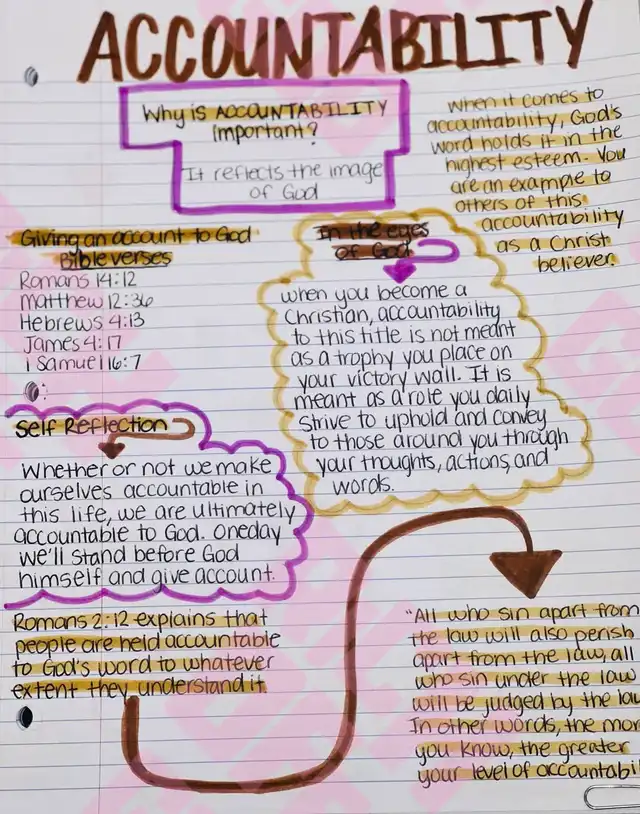 ACCOUNTABILITY
Why is ACCOUNTABILITY
important?
It reflects the image
of God
When it comes to
accountability, God's
word holds it in the
highest esteem. You
are an example to
others of this
accountability
as a Christ
believer.
Giving an account to God
Bible verses
Romans 14:12
Matthew 12:36
Hebrews 4:13
James 4:17
1 Samuel 16:7
In the eyes
of God
when you become a
Christian, accountability
to this title is not meant
as a trophy you place on
your victory wall. It is
meant as a role you daily
strive to uphold and convey
to those around you through
your thoughts, actions, and
words.
Self Reflection
Whether or not we make
ourselves accountable in
this life, we are ultimately
accountable to God. Oneday
we'll stand before God
himself and give account.
Romans 2:12 explains that
people are held accountable
to God's word to whatever
extent they understand it
"All who sin apart from
the law will also perish
apart from the law, all
who sin under the law
will be judged by the law
In other words, the mor
you know, the greater
your level of accountabil